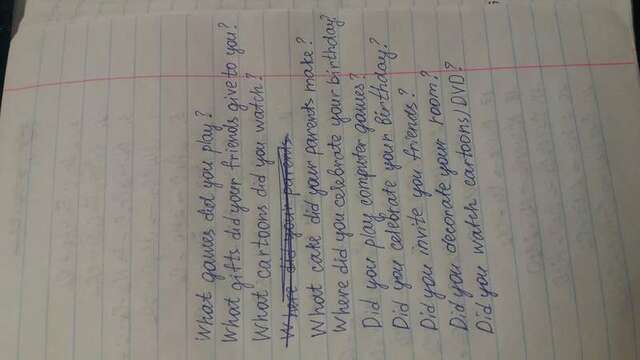 What games did you play?
What gifts did your friends give to you?
What cartoons did you watch?
Where did your parents
What cake did your parents make?
Where did you celebrate your birthday?
Did you play computer games?
Did you celebrate your birthday?
Did you invite you friends?
Did you decorate your room?
Did you watch cartoons/DVD?